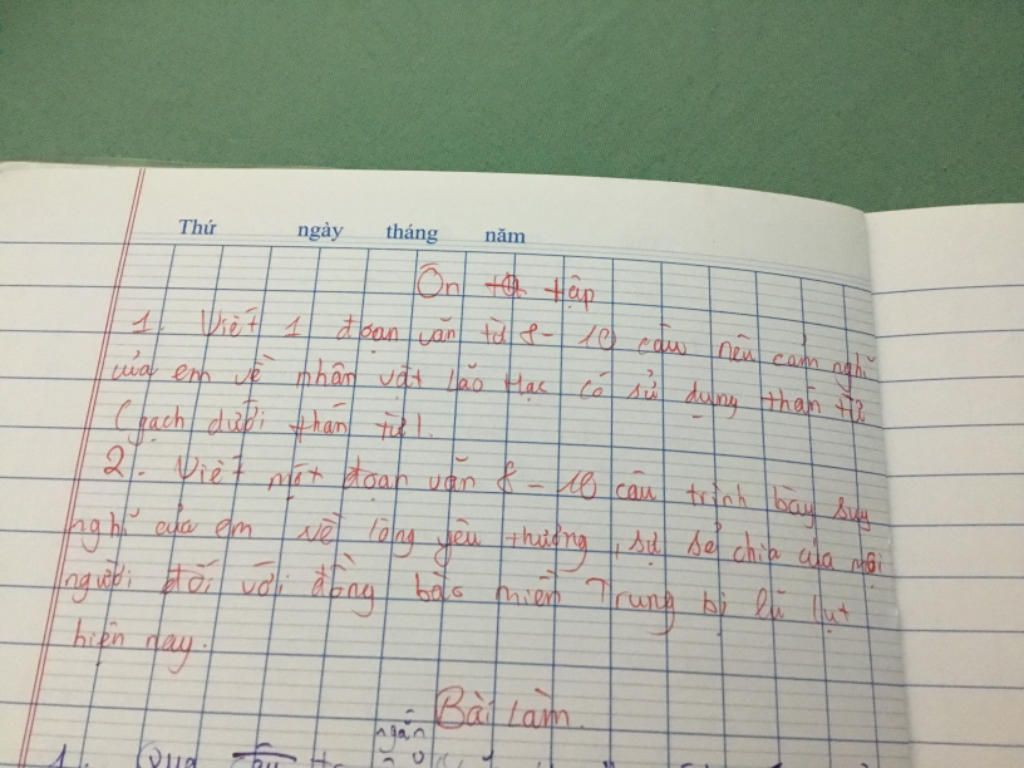 Thứ ngày tháng năm
Ôn tập
1. Viết 1 đoạn văn từ 8 - 10 câu nêu cảm nghĩ
của em về nhân vật Lão Hạc có sử dụng thán từ
(gạch dưới thán từ).
2. Viết một đoạn văn 8 - 10 câu trình bày suy
nghĩ của em về lòng yêu thương, sự sẻ chia của mọi
người đối với đồng bào miền Trung bị lũ lụt
hiện nay.
Bài làm
ngắn
1. Qua